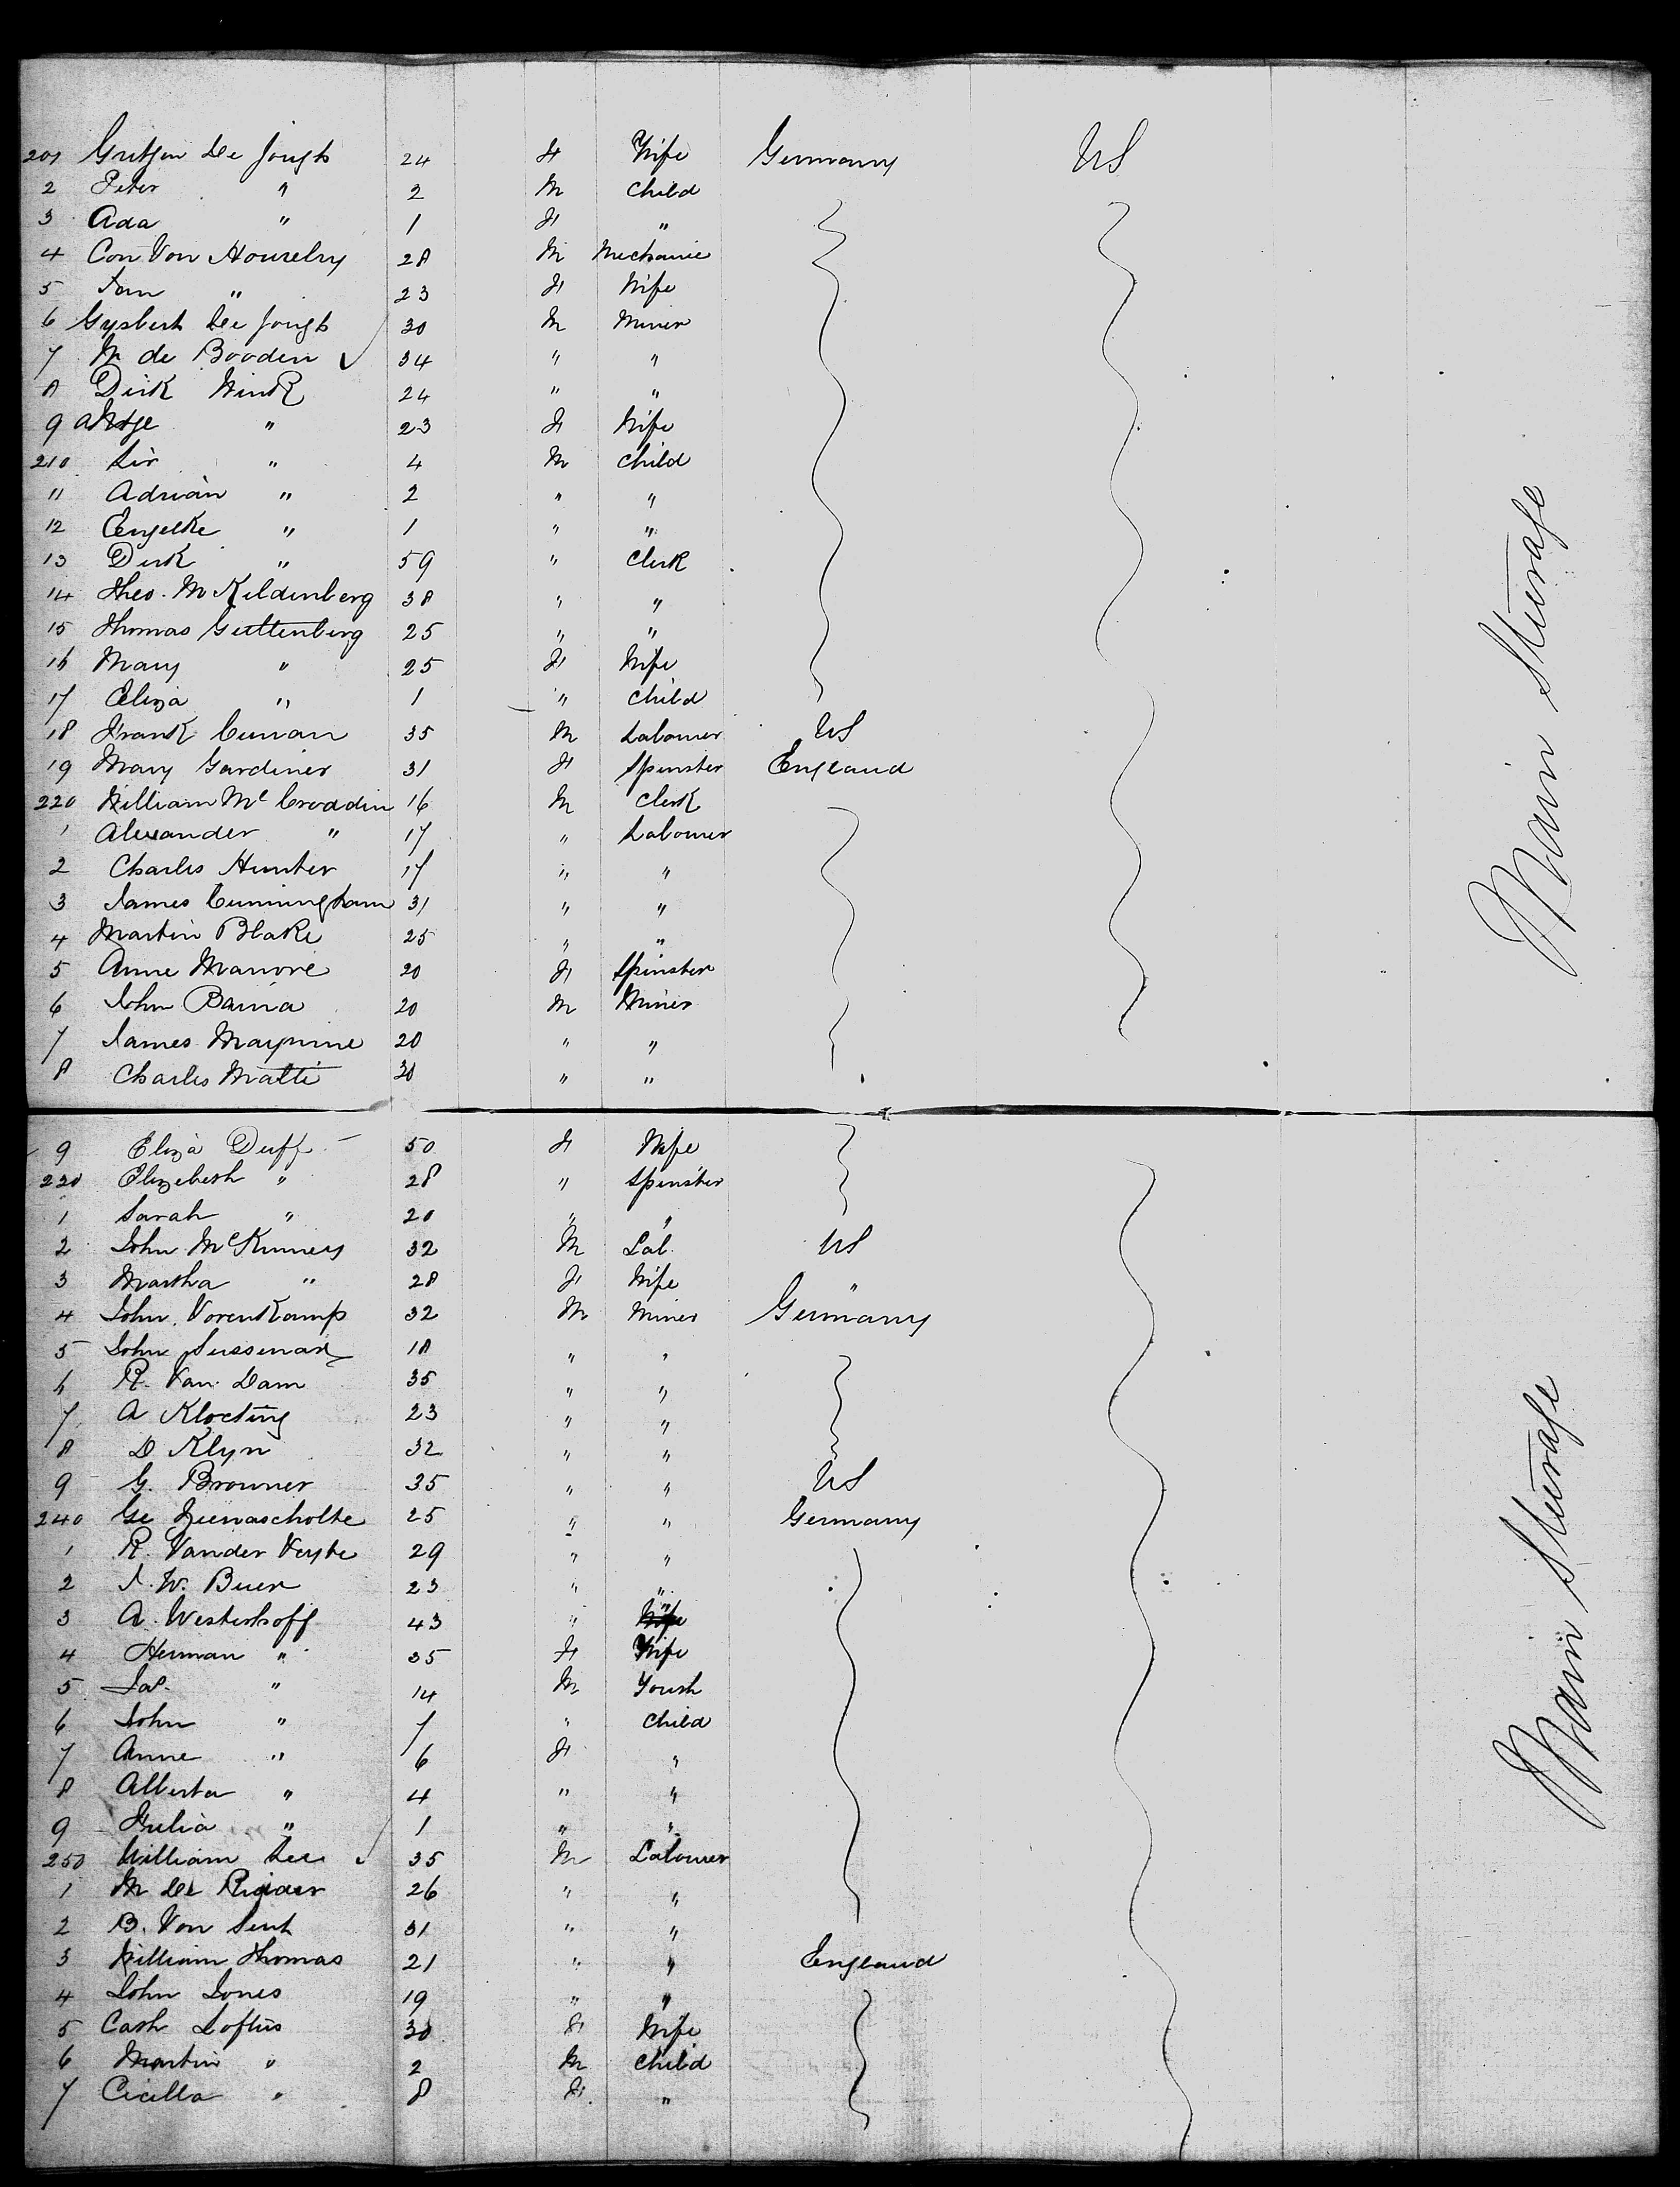 201 Gritjen De Jongh 24 F Wife Germany US
2 Peter " 2 M Child
3 Ada " 1 F "
4 Con Von Hourelry 28 M Mechanic
5 Jan " 23 F Wife
6 Gysbert De Jongh 30 M Miner
7 W de Booden ✓ 34 " "
8 Dirk Wink 24 " "
9 " 23 F Wife
210 Lir " 4 M Child
11 Adrian " 2 " "
12 Engelke " 1 " "
13 Dirk " 59 " Clerk
14 Theo. M Kildenberg 38 " "
15 Thomas Guttenberg 25 " "
16 Mary " 25 F Wife
17 Eliza " 1 " Child
18 Frank Curran 35 M Labourer US
19 Mary Gardiner 31 F Spinster England
220 William Mc Croddin 16 M Clerk
1 Alexander " 17 " Labourer
2 Charles Hunter 17 " "
3 James Cunningham 31 " "
4 Martin Blake 25 " "
5 Anne Manore 20 F Spinster
6 John Bama 20 M Miner
7 James 20 " "
8 Charles Matte 30 " "
Main Steerage
9 Eliza Duff 50 F Wife
220 Elizebeth " 28 " Spinster
1 Sarah " 20 " "
2 John McKinney 32 M Lab. US
3 Martha " 28 F Wife "
4 John Vorenkamp 32 M Miner Germany
5 John 18 " "
6 R. Van Dam 35 " "
7 A Klocting 23 " "
8 D Klyn 32 " "
9 G. Brouner 35 " " US
240 Ge 25 " " Germany
1 R. Vander Veyte 29 " "
2 J. W. Buer 23 " "
3 A. Westerhoff 43 " "
4 Herman " 35 F Wife
5 Jas. " 14 M Youth
6 John " 7 " Child
7 Anne " 6 F "
8 Alberta " 4 " "
9 Julia " 1 " "
250 William Lee ✓ 35 M Labourer
1 M De 26 " "
2 B. Von Sent 31 " "
3 William Thomas 21 " " England
4 John Jones 19 " "
5 Cath Loftus 30 F Wife
6 Martin " 2 M Child
7 Cicilla " 8 F "
Main Steerage